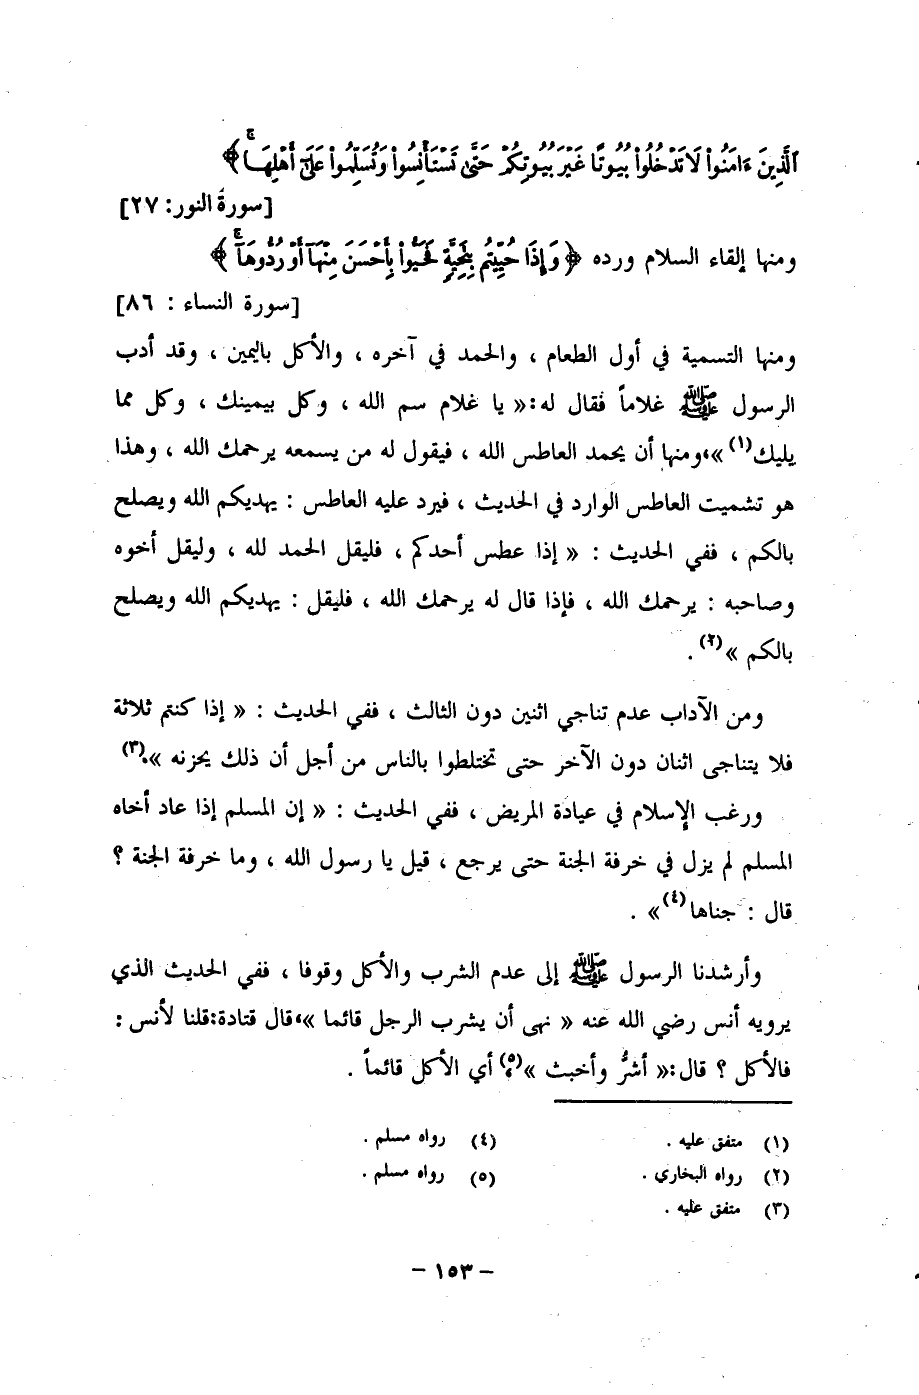 ٱلَّذِينَ ءَامَنُوا۟ لَا تَدْخُلُوا۟ بُيُوتًا غَيْرَ بُيُوتِكُمْ حَتَّىٰ تَسْتَأْنِسُوا۟ وَتُسَلِّمُوا۟ عَلَىٰٓ أَهْلِهَا ۚ ﴾
[سورة النور: ٢٧]
ومنها إلقاء السلام ورده ﴿ وَإِذَا حُيِّيتُم بِتَحِيَّةٍ فَحَيُّوا۟ بِأَحْسَنَ مِنْهَآ أَوْ رُدُّوهَآ ۗ ﴾
[سورة النساء : ٨٦]
ومنها التسمية في أول الطعام ، والحمد في آخره ، والأكل باليمين ، وقد أدب
الرسول ﷺ غلاماً فقال له:« يا غلام سم الله ، وكل بيمينك ، وكل مما
يليك(١)»،ومنها أن يحمد العاطس الله ، فيقول له من يسمعه يرحمك الله ، وهذا
هو تشميت العاطس الوارد في الحديث ، فيرد عليه العاطس : يهديكم الله ويصلح
بالكم ، ففي الحديث : « إذا عطس أحدكم ، فليقل الحمد لله ، وليقل أخوه
وصاحبه : يرحمك الله ، فإذا قال له يرحمك الله ، فليقل : يهديكم الله ويصلح
بالكم »(٢) .
ومن الآداب عدم تناجي اثنين دون الثالث ، ففي الحديث : « إذا كنتم ثلاثة
فلا يتناجى اثنان دون الآخر حتى تختلطوا بالناس من أجل أن ذلك يحزنه ».(٣)
ورغب الإسلام في عيادة المريض ، ففي الحديث : « إن المسلم إذا عاد أخاه
المسلم لم يزل في خرفة الجنة حتى يرجع ، قيل يا رسول الله ، وما خرفة الجنة ؟
قال : جناها(٤)» .
وأرشدنا الرسول ﷺ إلى عدم الشرب والأكل وقوفا ، ففي الحديث الذي
يرويه أنس رضي الله عنه « نهى أن يشرب الرجل قائما »،قال قتادة:قلنا لأنس :
فالأكل ؟ قال:« أشرُّ وأخبث »(٥)، أي الأكل قائماً .
(١) متفق عليه .
(٢) رواه البخاري .
(٣) متفق عليه .
(٤) رواه مسلم .
(٥) رواه مسلم .
- ١٥٣ -